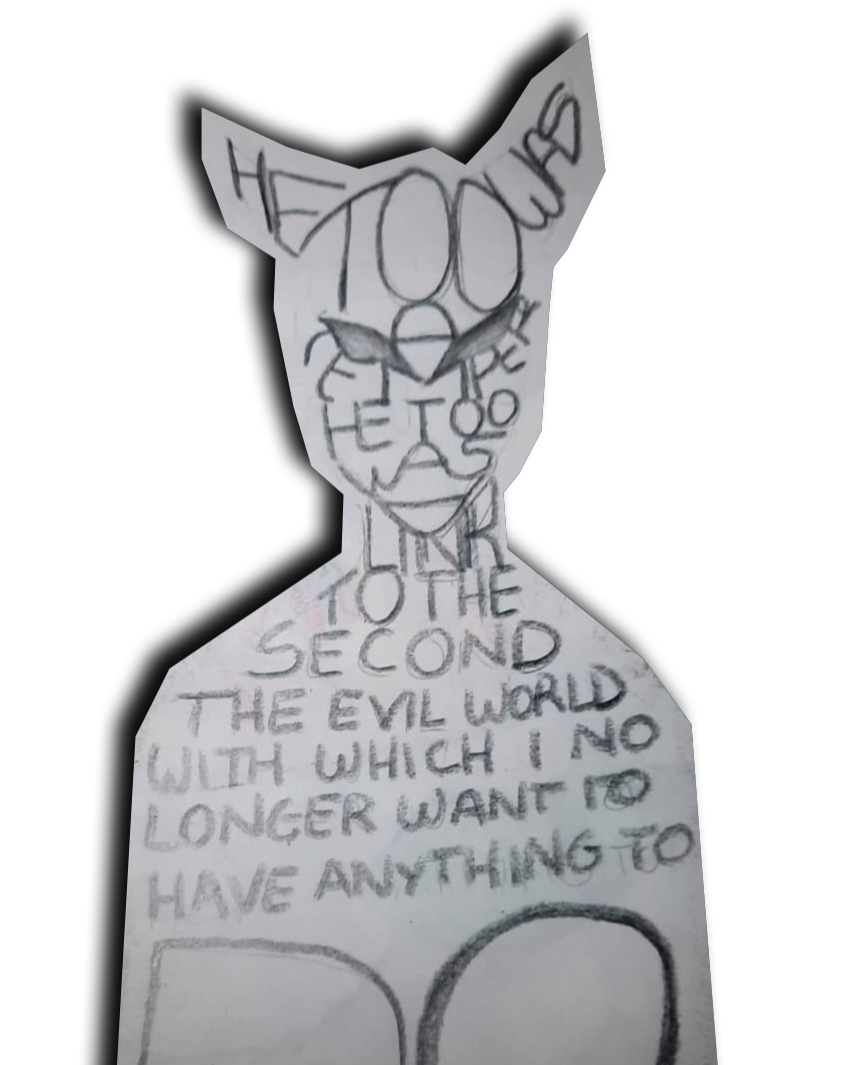 HE TOO WAS
HE TOO
LINK
TO THE
SECOND
THE EVIL WORLD
WITH WHICH I NO
LONGER WANT TO
HAVE ANYTHING TO
DO